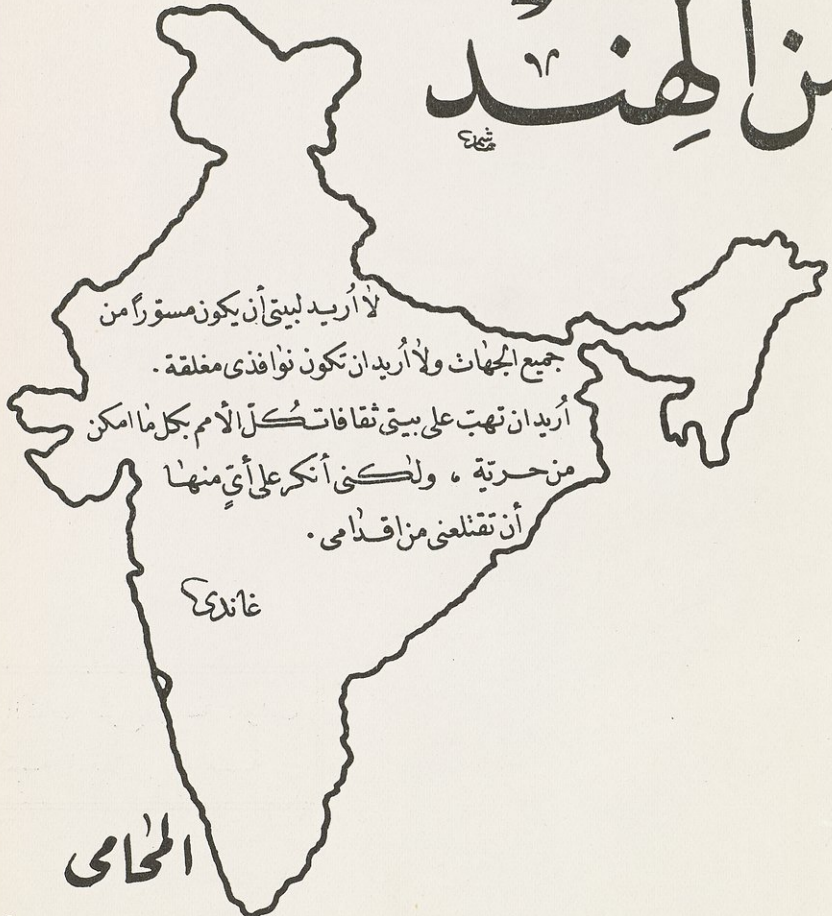 من الهند
لا أريد لبيتي أن يكون مسوّراً من
جميع الجهات ولا أُريد ان تكون نوافذى مغلقة .
أُريد ان تهبّ على بيتى ثقافات كُلّ الأمم بكل ما امكن
من حريّة ، ولكنى أنكر على أيٍّ منها
أن تقتلعنى من اقدامى .
غاندى
المحامى